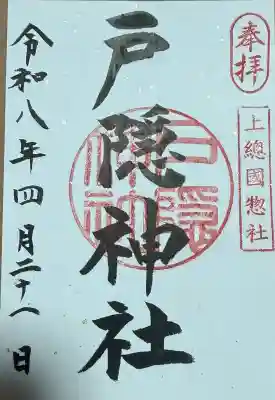 奉拝
上總國惣社
戸隠神社
戸隠神社
令和八年四月二十八日